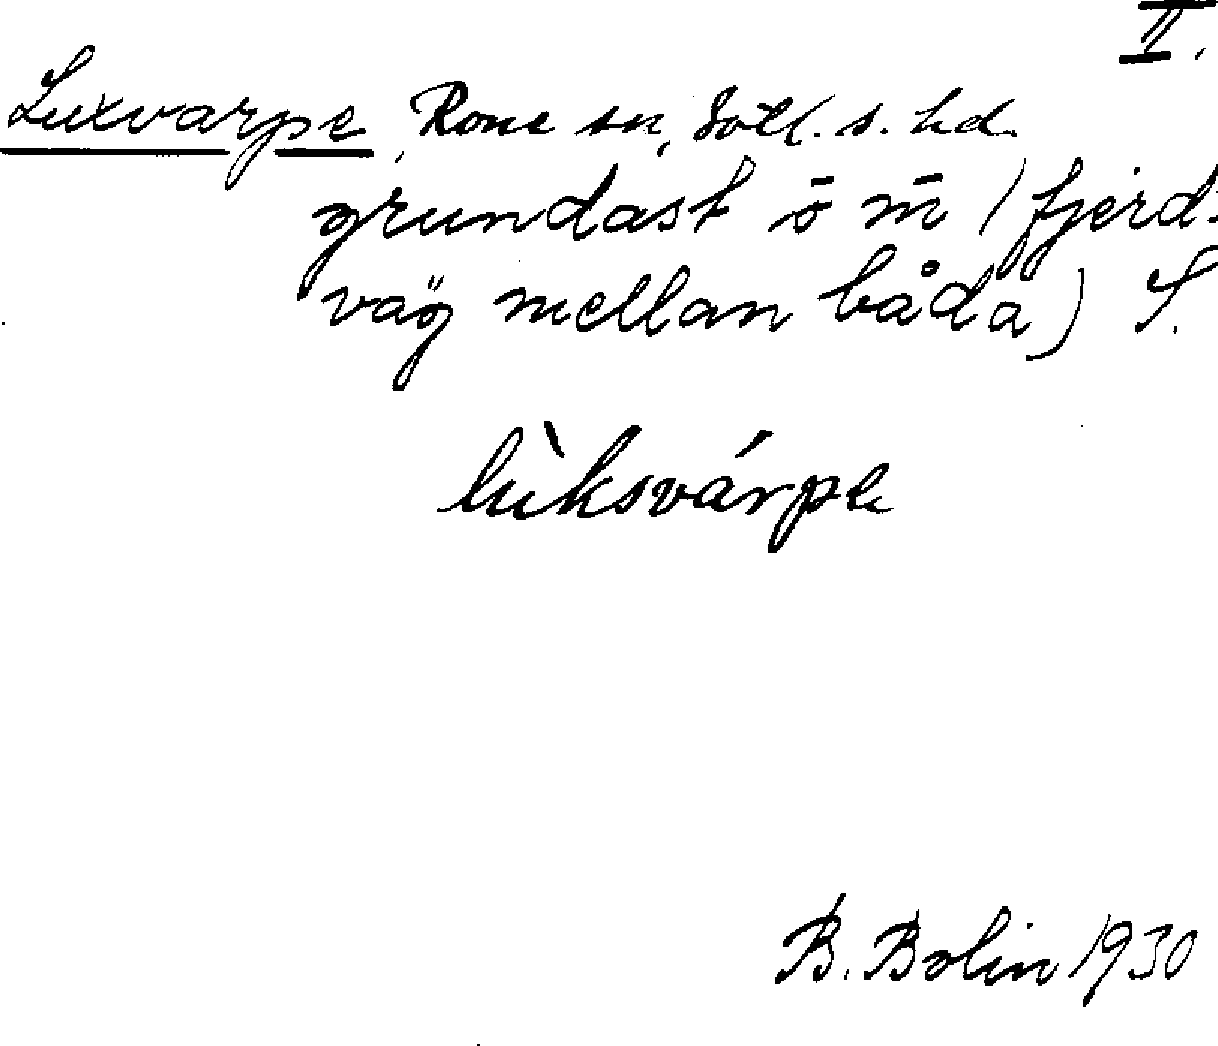 II.
Luxvarpe, Rone sn, Gotl. s. hd.
grundast ō m̄ (fjerd-
väg mellan båda) S.
lùksvárpe
B. Bolin 1930